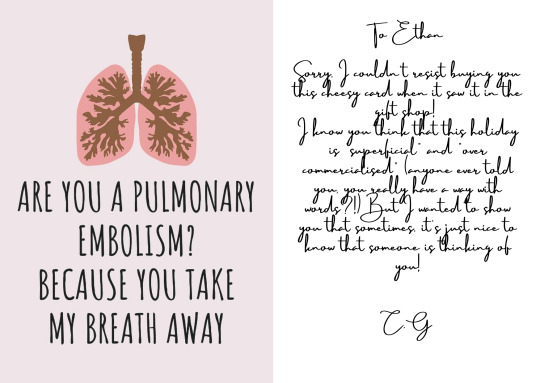 ARE YOU A PULMONARY
EMBOLISM?
BECAUSE YOU TAKE
MY BREATH AWAY
To Ethan
Sorry, I couldn't resist buying you
this cheesy card when it saw it in the
gift shop!
I know you think that this holiday
is "superficial" and "over
commercialised" (anyone ever told
you, you really have a way with
words?!) But I wanted to show
you that sometimes, it's just nice to
know that someone is thinking of
you!
C.G